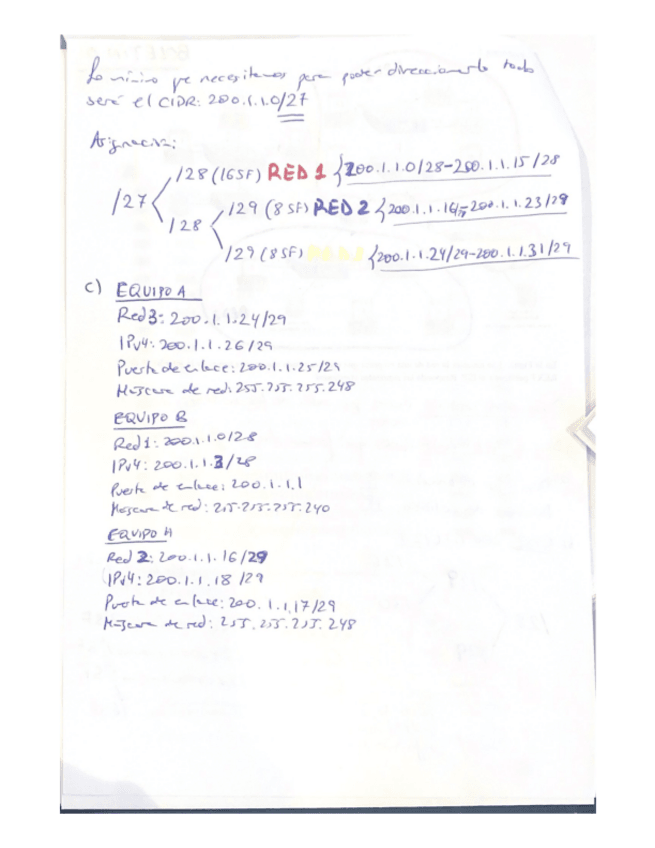 Lo mínimo que necesitamos para poder direccionarlo todo
será el CIDR: 200.1.1.0/27
Asignación:
/28 (16SF) RED 1 {200.1.1.0/28-200.1.1.15/28
/27
/28
/29 (8SF) RED 2 {200.1.1.16/29-200.1.1.23/29
/29 (8SF) RED 3 {200.1.1.24/29-200.1.1.31/29
c) EQUIPO A
Red3: 200.1.1.24/29
IPv4: 200.1.1.26/29
Puerta de enlace: 200.1.1.25/29
Máscara de red: 255.255.255.248
EQUIPO B
Red1: 200.1.1.0/28
IPv4: 200.1.1.3/28
Puerta de enlace: 200.1.1.1
Máscara de red: 255.255.255.240
EQUIPO H
Red 2: 200.1.1.16/29
IPv4: 200.1.1.18/29
Puerta de enlace: 200.1.1.17/29
Máscara de red: 255.255.255.248